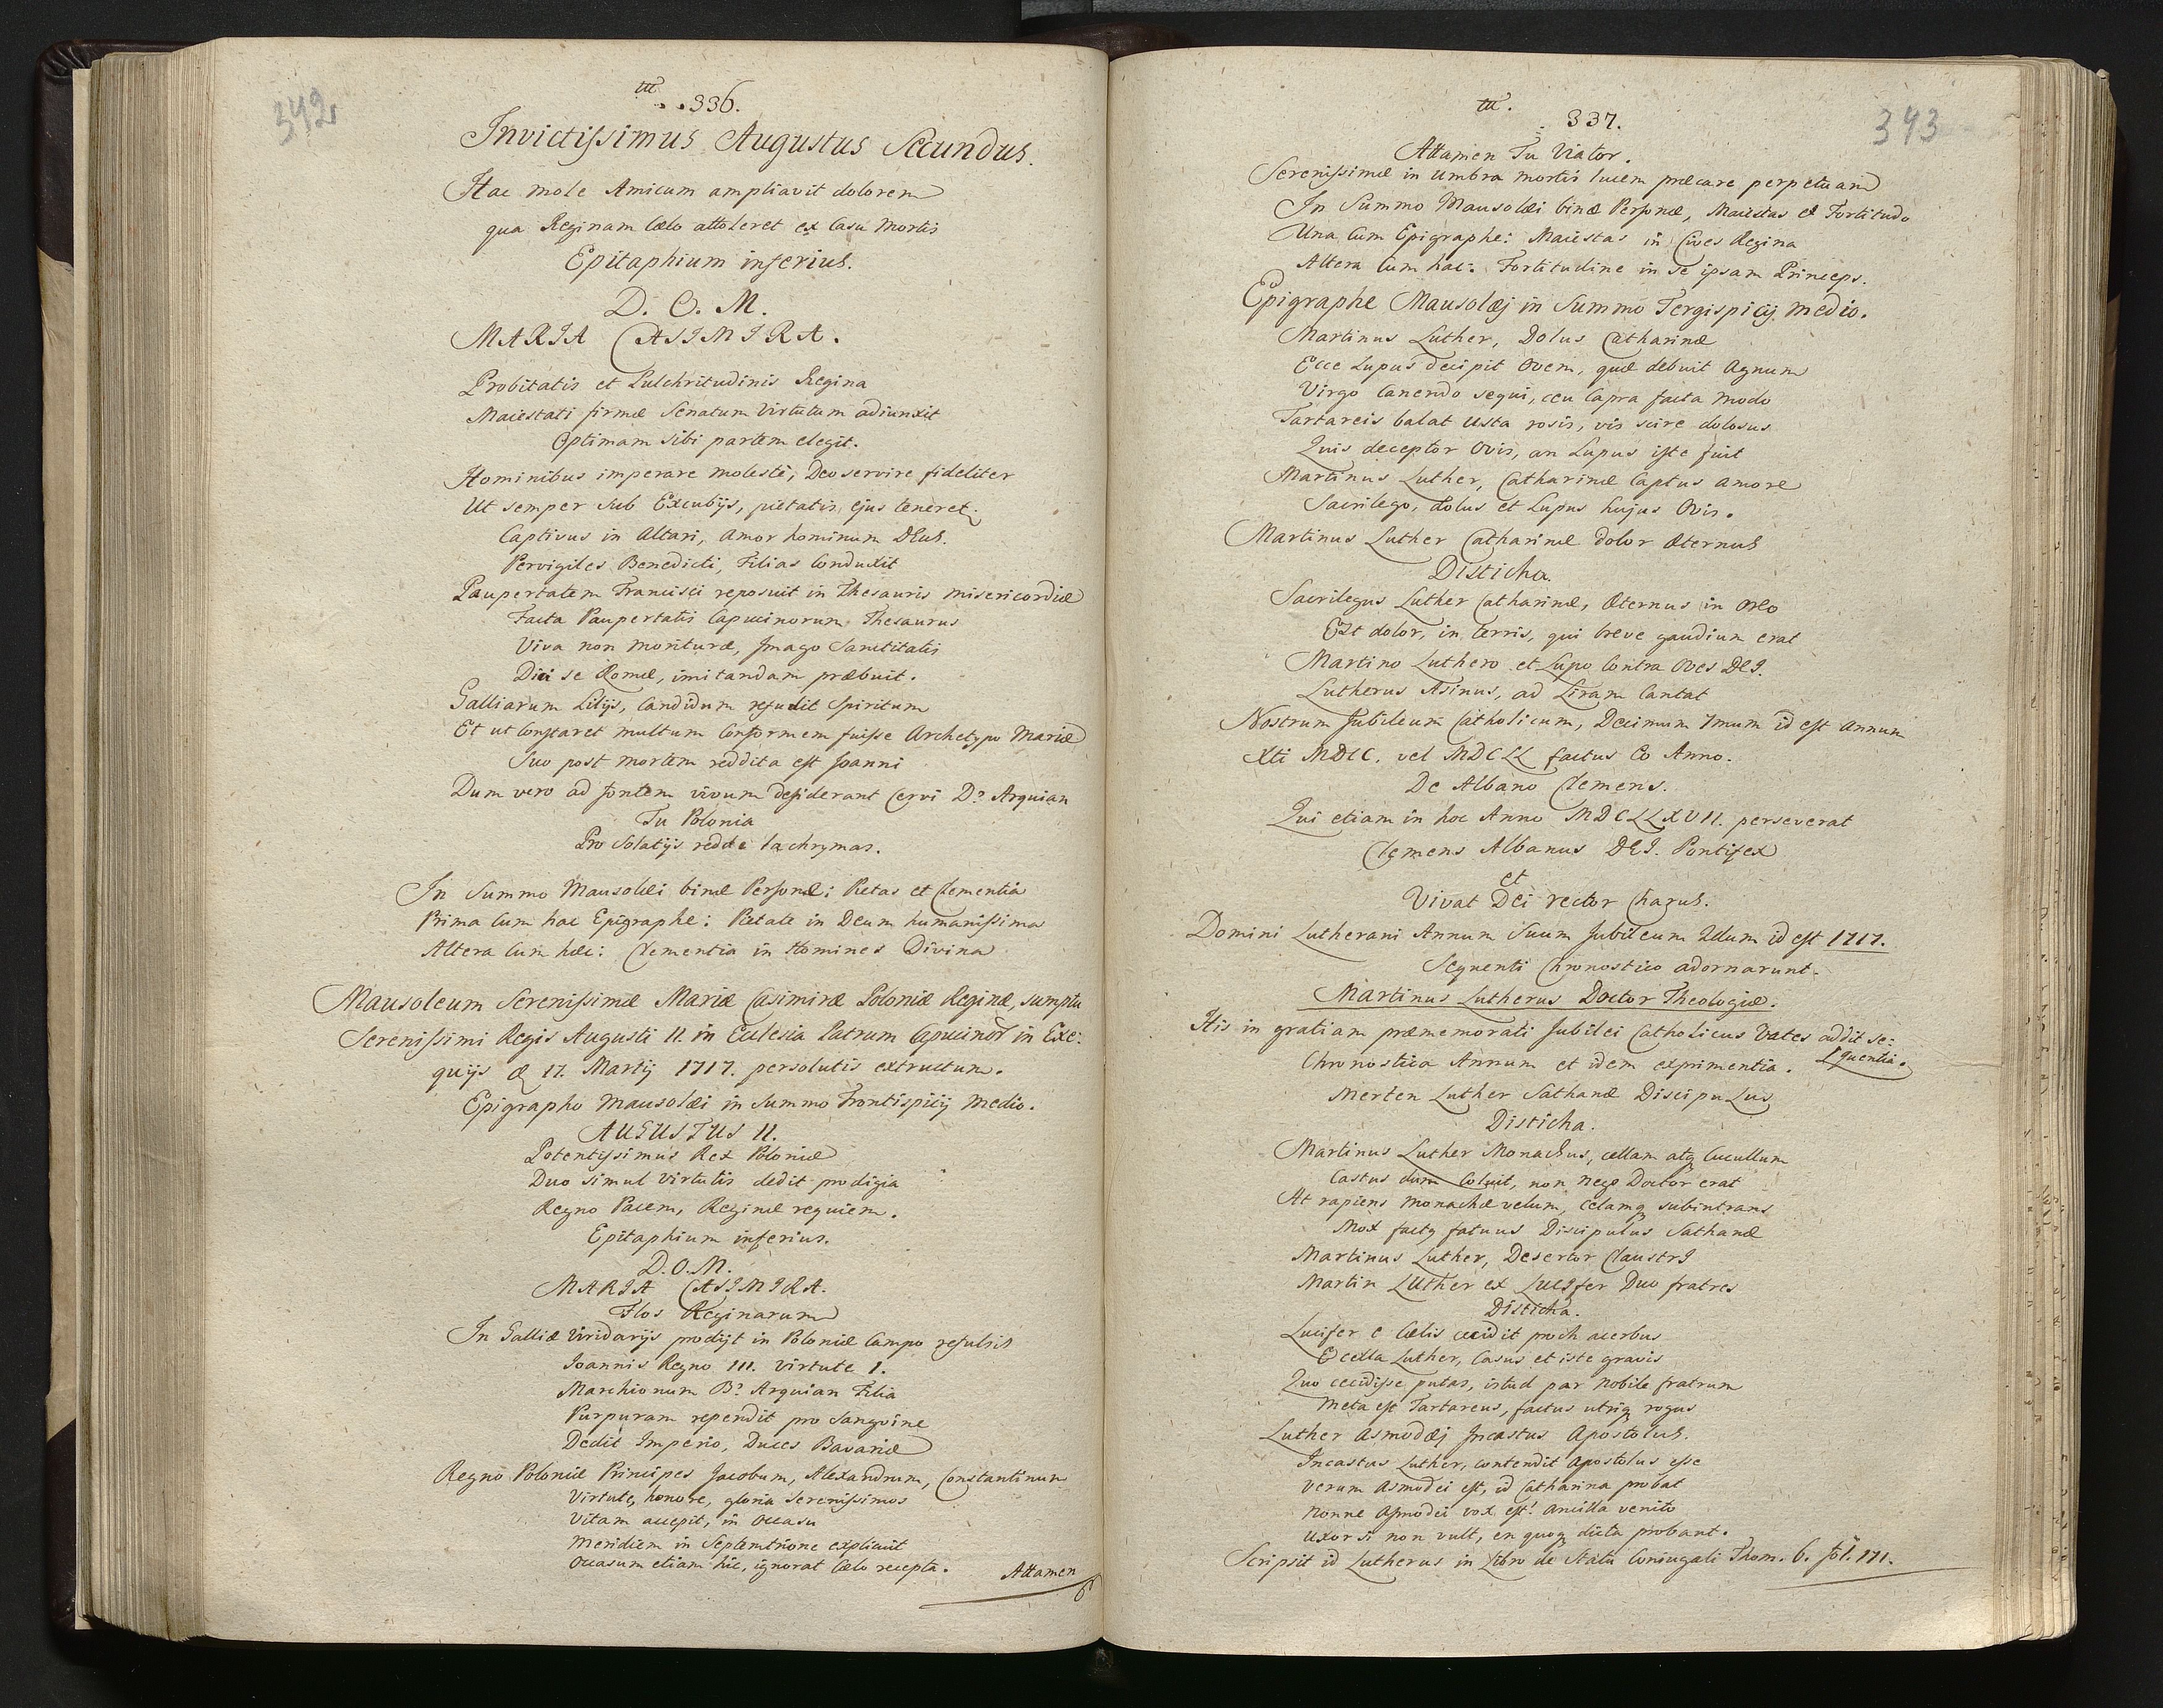 342
336.
Invictissimus Augustus Secundus.
Hac mole Amicum ampliavit dolorem
qua Reginam Cælo attoleret ex Casu Mortis
Epitaphium inferius.
D. O. M.
MARIA CASIMIRA.
Probitatis et Pulchritudinis Regina
Maiestati firmæ Senatum Virtutum adiunxit
Optimam sibi partem elegit.
Hominibus imperare molestè, Deo servire fideliter
Ut semper sub Excubijs, pietatis ejus teneret
Captivus in Altari, Amor hominum DEus.
Pervigiles Benedicti, Filias Conduxit
Paupertatem Francisci reposuit in Thesauris misericordiæ
Facta Paupertatis Capucinorum Thesaurus
Viva non morituræ, Imago Sanctitatis
Diù se Romæ, imitandam præbuit.
Galliarum Lilijs, Candidum refudit Spiritum
Et ut Constaret multum Conformem fuisse Archetypo Mariæ
Suo post mortem reddita est Joanni
Dum vero ad fontem vivum desiderant Cervi D? Arquian
Tu Polonia
Pro Solatijs redde lachrymas.
In Summo Mausolæi binæ Personæ: Pietas et Clementia
Prima Cum hac Epigraphe: Pietate in Deum humanissima
Altera Cum hac: Clementia in Homines Divina
Mausoleum Serenissimæ Mariæ Casimiræ Poloniæ Reginæ, sumptu
Serenissimi Regis Augusti II. in Ecclesia Patrum Capucinor in Exe:
quijs 17. Martij 1717. persolutis extructum.
Epigrapho Mausolæi in Summo Frontispicij Medio.
AUGUSTUS II.
Potentissimus Rex Poloniæ
Duo simul virtutis dedit prodigia
Regno Pacem, Reginæ requiem.
Epitaphium inferius.
D.O.M.
MARIA CASIMIRA.
Flos Reginarum
In Galliæ Viridarijs prodijt in Poloniæ Campo refulsit
Joannis Regno III. Virtute I.
Marchionum D? Arquian Filia
Purpuram rependit pro Sangvine
Dedit Imperio, Duces Bavariæ
Regno Poloniæ Principes Jacobum, Alexandrum, Constantinum
Virtute, honore, gloria Serenissimos
Vitam accepit, in Occasu
Meridiem in Septemtrione explicuit
Occasum etiam hic, ignorat Cælo recepta.
Attamen
337.
343
Attamen Tu Viator.
Serenissimæ in Umbra mortis lucem præcare perpetuam
In Summo Mausolæi binæ Personæ, Maiestas et Fortitudo
Una Cum Epigraphe: Maiestas in Cives Regina
Altera Cum hac: Fortitudine in se ipsam Princeps.
Epigraphe Mausolæj in Summo Tergispicij medio.
Martinus Luther, Dolus Catharinæ
Ecce Lupus decipit Ovem, quæ debuit Agnum
Virgo Canendo sequi, ceu Capra facta modo
Tartareis balat usta rosis, vis scire dolosus
Quis deceptor Ovis, an Lupus iste fuit
Martinus Luther, Catharinæ Captus amore
Sacrilego, dolus et Lupus hujus Ovis.
Martinus Luther Catharinæ dolor Æternus
Disticha.
Sacrilegus Luther Catharinæ, Æternus in Orco
Est dolor, in terris, qui breve gaudium erat
Martino Luthero et Lupo Contra Oves DEI.
Lutherus Asinus, ad Liram Cantat
Nostrum Jubileum Catholicum, Decimum 7mum id est Annum
Xti MDCC. vel MDCLL factus Eo Anno.
De Albano Clemens.
Qui etiam in hoc Anno MDCLLXVII. perseverat
Clemens Albanus DEI. Pontifex
et
Vivat Dei rector Charus.
Domini Lutherani Annum Suum Jubileum 2dum id est 1717.
Sequenti Chronostico adornarunt.
Martinus Lutherus Doctor Theologiæ.
His in gratiam præmemorati Jubilei Catholicus Vates addit se:
quentia.
Chronostica Annum et idem exprimentia.
Merten Luther Sathanæ DiscipuLus
Disticha.
Martinus Luther Monachus, cellam atq Cucullum
Castus dum Coluit, non nego Doctor erat
At rapiens monachæ velum, Celamq subintrans
Mox factq fatuus Discipulus Sathanæ
Martinus Luther, Desertor ClaustrI
Martin LUther ex LUcIfer Duo fratres
Disticha.
Lucifer è Cælis cecidit proch acerbus
E cella Luther, Casus et iste gravis
Quo cecidisse putas, istud par nobile fratrum
Meta est Tartareus, factus utriq rogus
Luther Asmodæj Incastus Apostolus.
Incastus Luther, contendit Apostolus esse
Verum Asmodei est, id Catharina probat
Nonne Asmodei vox est! ancilla venito
Uxor si non vult, en quoq dicta probant.
Scripsit id Lutherus in Libro de Statu Coniugali Thom. 6. fol. 171.